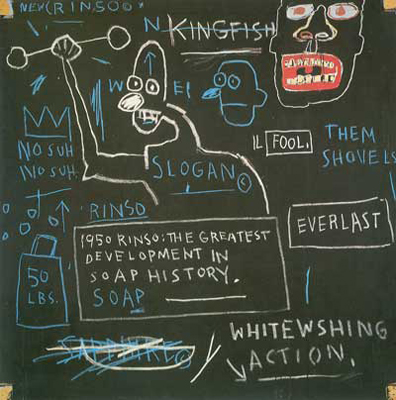 NEW(RINSO©
N KINGFISH
W EI
IL FOOL.
THEM
SHOVELS
NO SUH
NO SUH
SLOGAN©
RINSO
EVERLAST
1950 RINSO: THE GREATEST
DEVELOPMENT IN
SOAP HISTORY.
SOAP
50
LBS.
SAPPHIRE©
WHITEWSHING
ACTION.